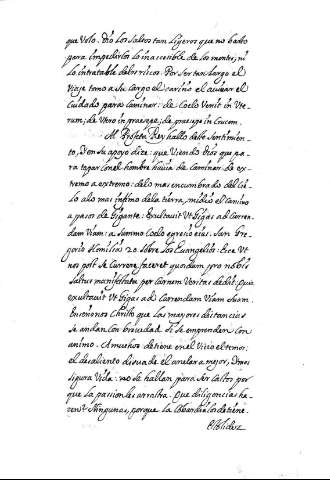 que Volo. Dio los saltos tan ligeros que no basto
para impedirlos lo inaccesible de los montes, ni
lo intratable delos riscos. Por ser tan largo el
Viaje tomo a su cargo el cariño el avivar el
Cuidado para caminar: de Coelo Venit in Ute
rum; de Utero in praesepe; de praesepe in Crucem.
Al Profeta Rey hallo deste sentimien
to, en su apoyo dize: que Viendo Dios que pa
ra topar con el hombre havia de caminar de ex
tremo a extremo: delo mas encumbrado del Cie
lo alo mas infimo dela tierra, midio el camino
a pasos de Gigante. Exultavit Ut Gigas ad Curren
dam Viam: a Summo Coelo egresio eius. San Gre
gorio Homilia 20 sobre los Evangelios. Ecce Ut
nos post se Currere faceret quosdam pro nobis
Saltus manifestata per Carnem Veritas dedit. Quia
exultavit Ut Gigas ad Currendam Viam Suam.
Enseñonos Christo que las mayores distancias
se andan con brevedad si se emprenden con
animo. A muchos detiene en el Vicio el temor:
el desaliento de
segura Vida: no se hallan para ser Castos por
que la pasion les arrastra. Que diligencias ha
cen? Ningunas, porque la cobardia los detiene.